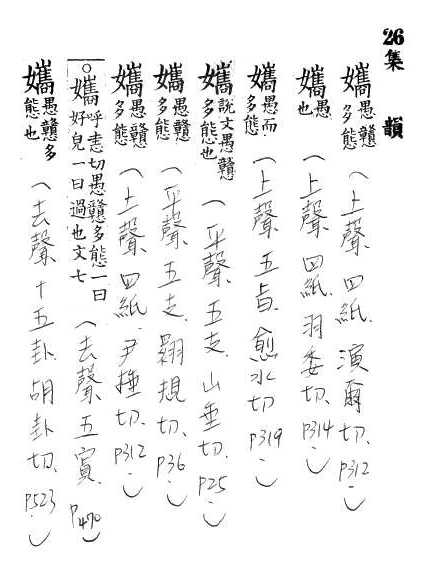 26集 韻
孈愚戇多態（上聲、四紙、演爾切、P312.）
孈愚也（上聲、四紙、羽委切、P314.）
孈愚而多態（上聲、五旨、愈水切 P319）
孈說文愚戇多態也（平聲、五支、山垂切、P25.）
孈愚戇多態（平聲、五支、翾規切、P36.）
孈愚戇多態（上聲、四紙、尹捶切、P312.）
○孈呼恚切愚戇多態一曰好皃一曰過也文七（去聲、五寘、P490）
孈愚戇多態也（去聲、十五卦、胡卦切、P523.）